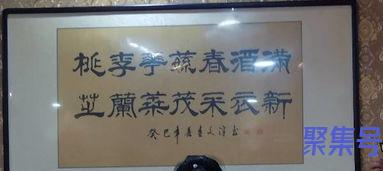 桃李華蘓春酒滿
芝蘭葉茂采衣新
癸巳年
聚集号